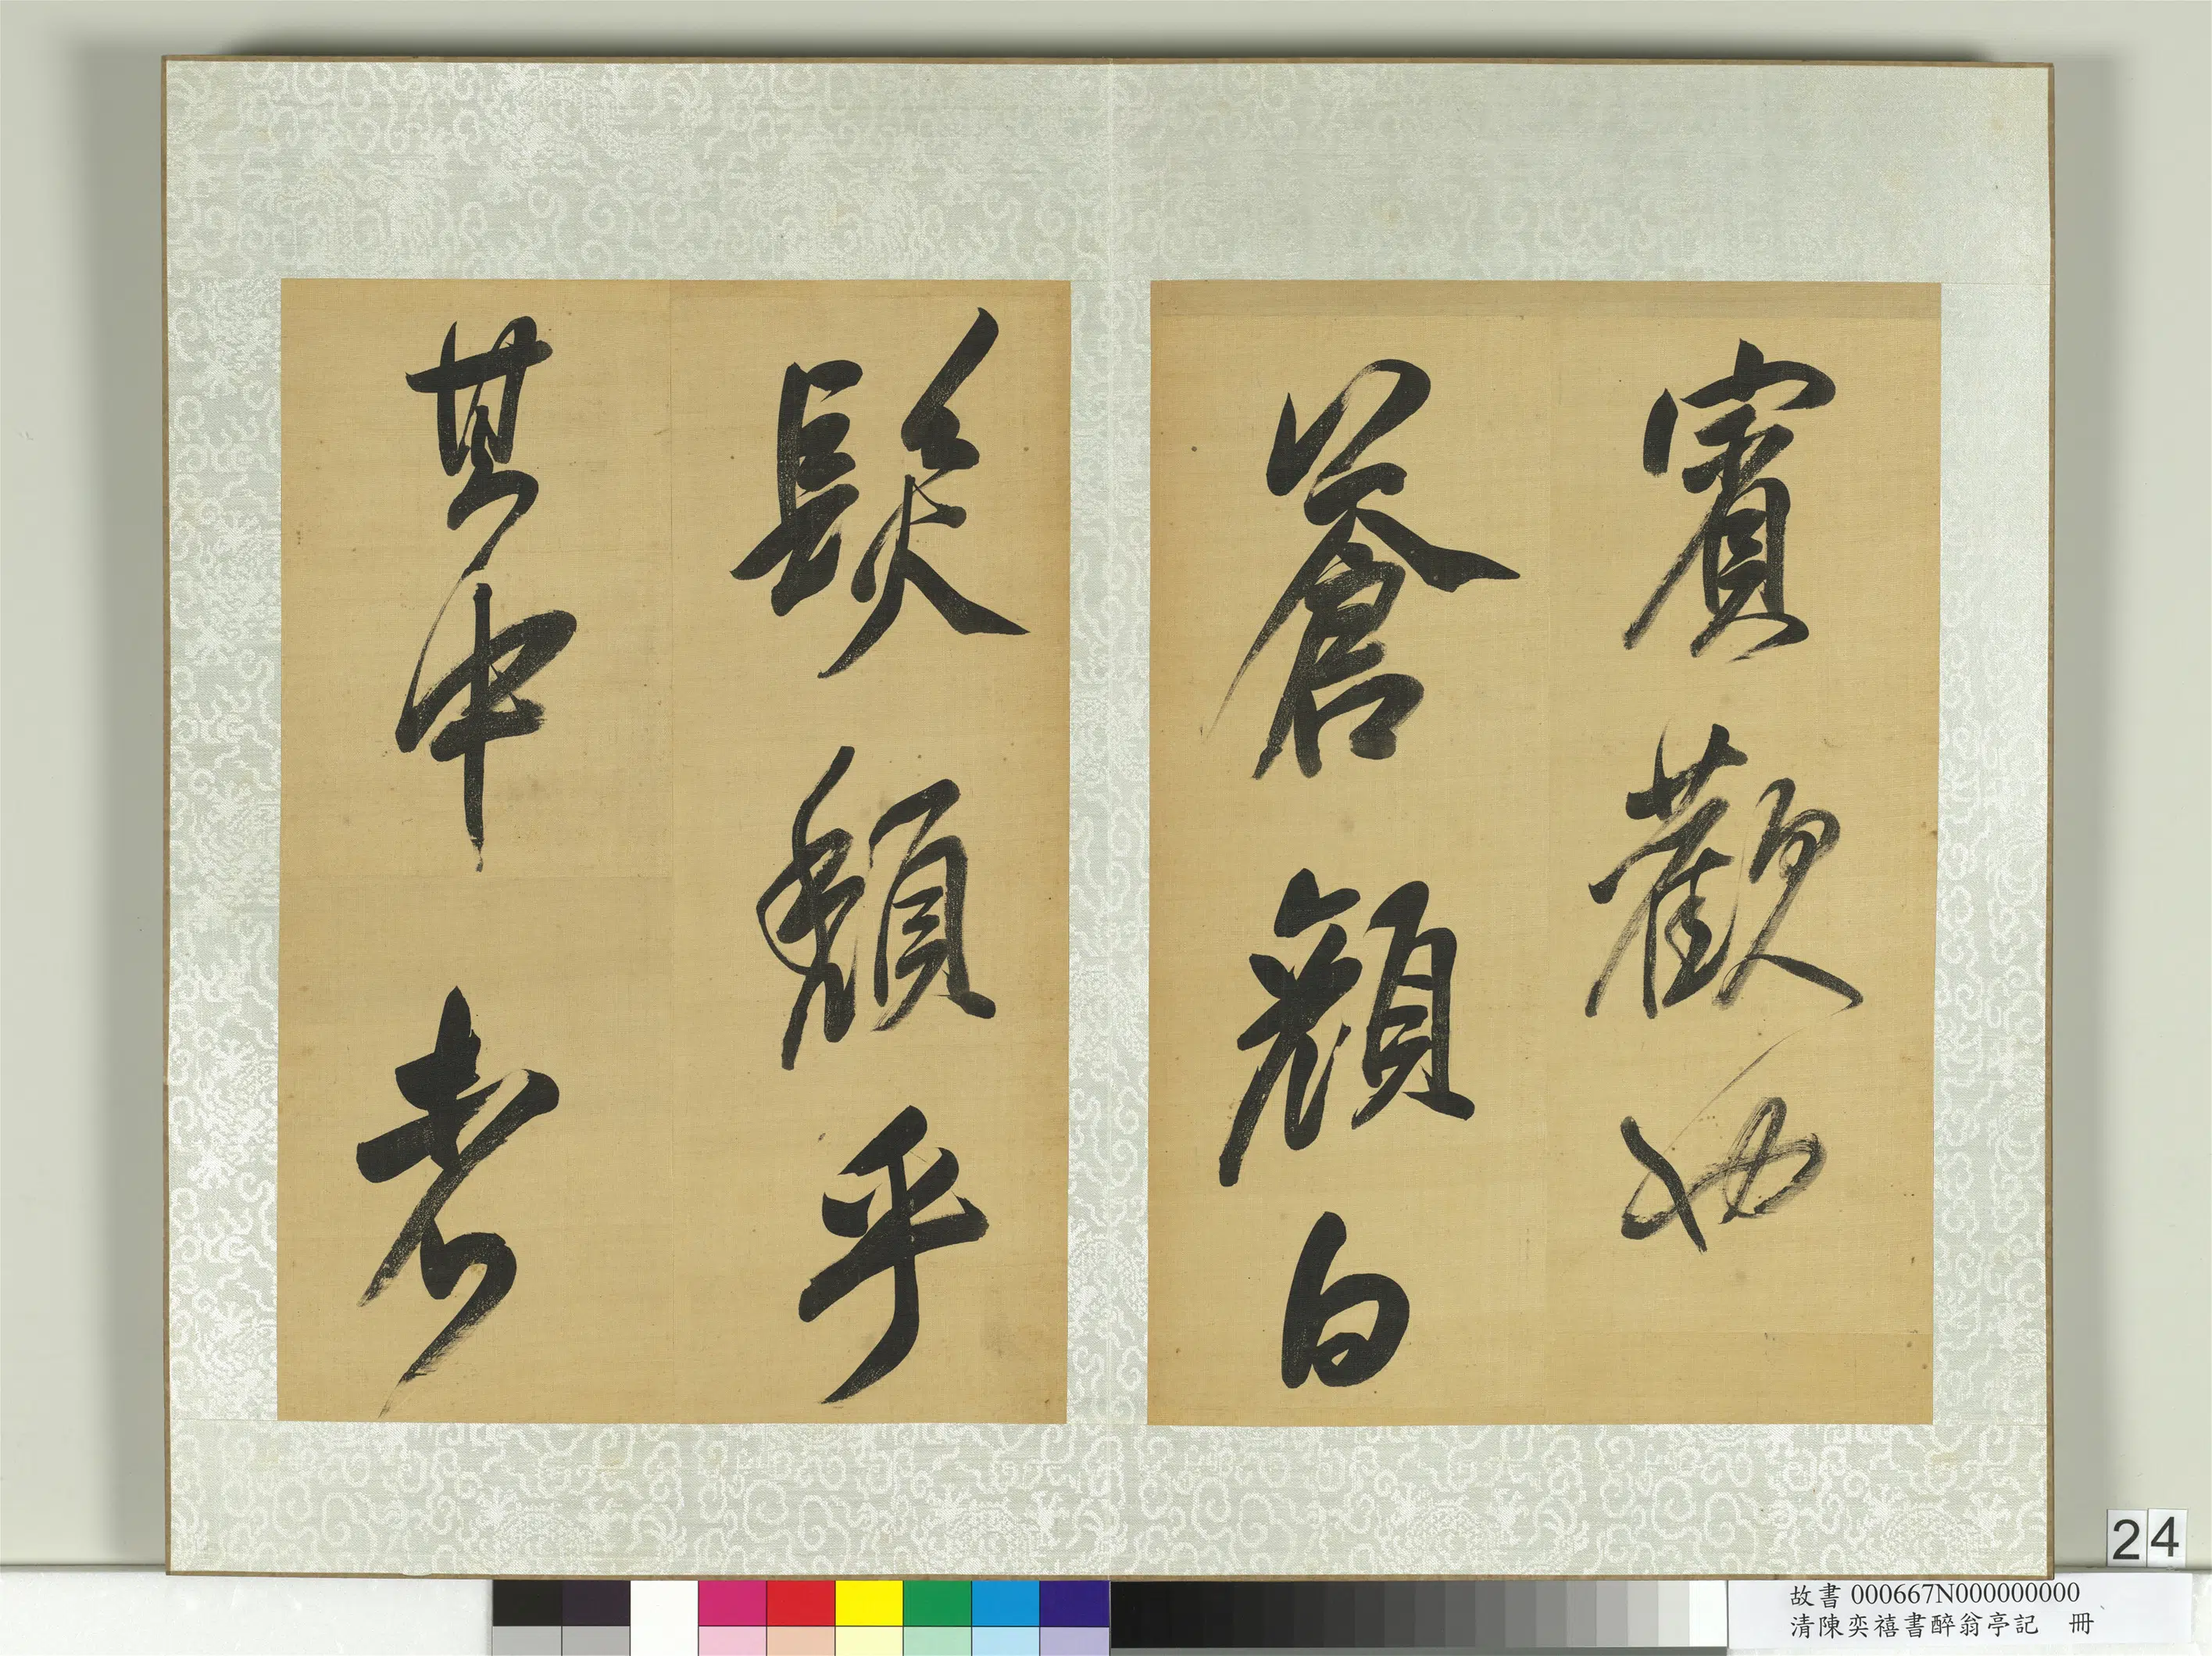 賓歡也
蒼顏白
髮頹乎
其中者
24
故書 000667N000000000
清陳奕禧書醉翁亭記 冊